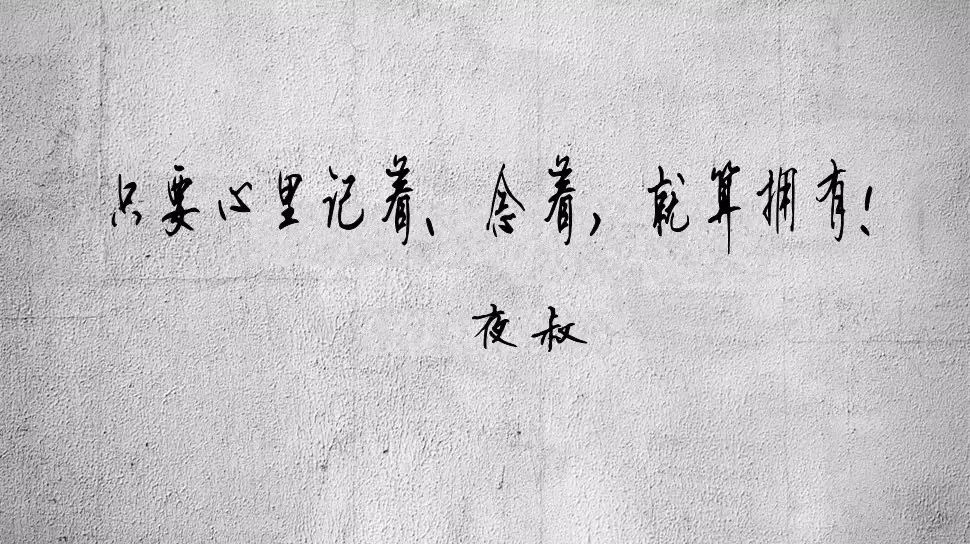 只要心里记着、念着,就算拥有!
夜叔